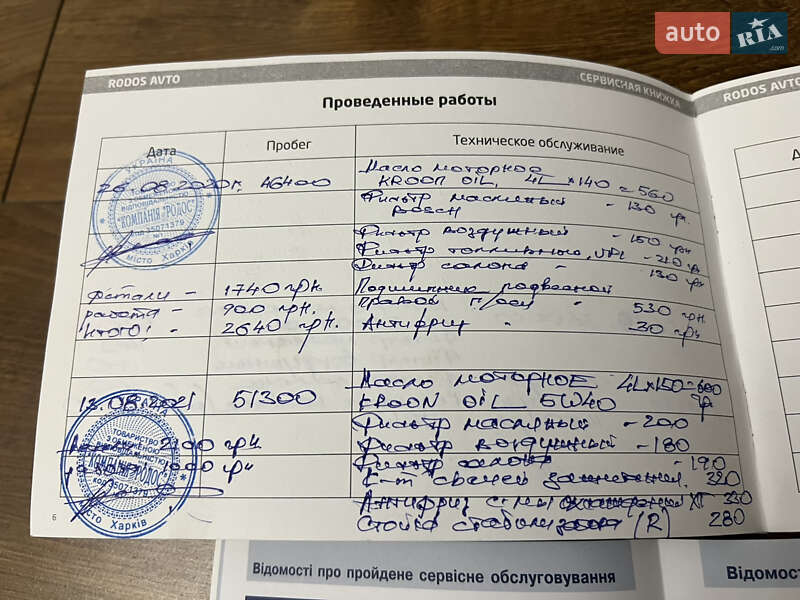 auto RIA.com
RODOS AVTO СЕРВИСНАЯ КНИЖКА
RODOS AVTO
Проведенные работы
Дата Пробег Техническое обслуживание
26.08.2020г. 46400 Масло моторное
KROON OIL, 4L × 140 = 560
Фильтр масляный - 130 гр.
BOSCH
Фильтр воздушный - 150 грн
Фильтр топливный, - 210 г
Фильтр салона - 130 грн
Детали - 1740 грн. Подшипник подвесной
работа - 900 грн. правой п/оси - 530 грн
Итого: - 2640 грн. Антифриз - 30 грн
13.08.2021 51300 Масло моторное 4L×150=600
KROON OIL 5W40 гр
Фильтр масляный - 200
2100 грн. Фильтр воздушный - 180
1000 грн Фильтр салона - 190
К-т свечей зажигания. 320
Антифриз 330
Стойка (R) 280
УКРАЇНА
"КОМПАНІЯ "РОДОС"
код 35071379
місто Харків
ТОВАРИСТВО
З ОБМЕЖЕНОЮ
код 35071379
місто Харків
6
Відомості про пройдене сервісне обслуговування
Відомост